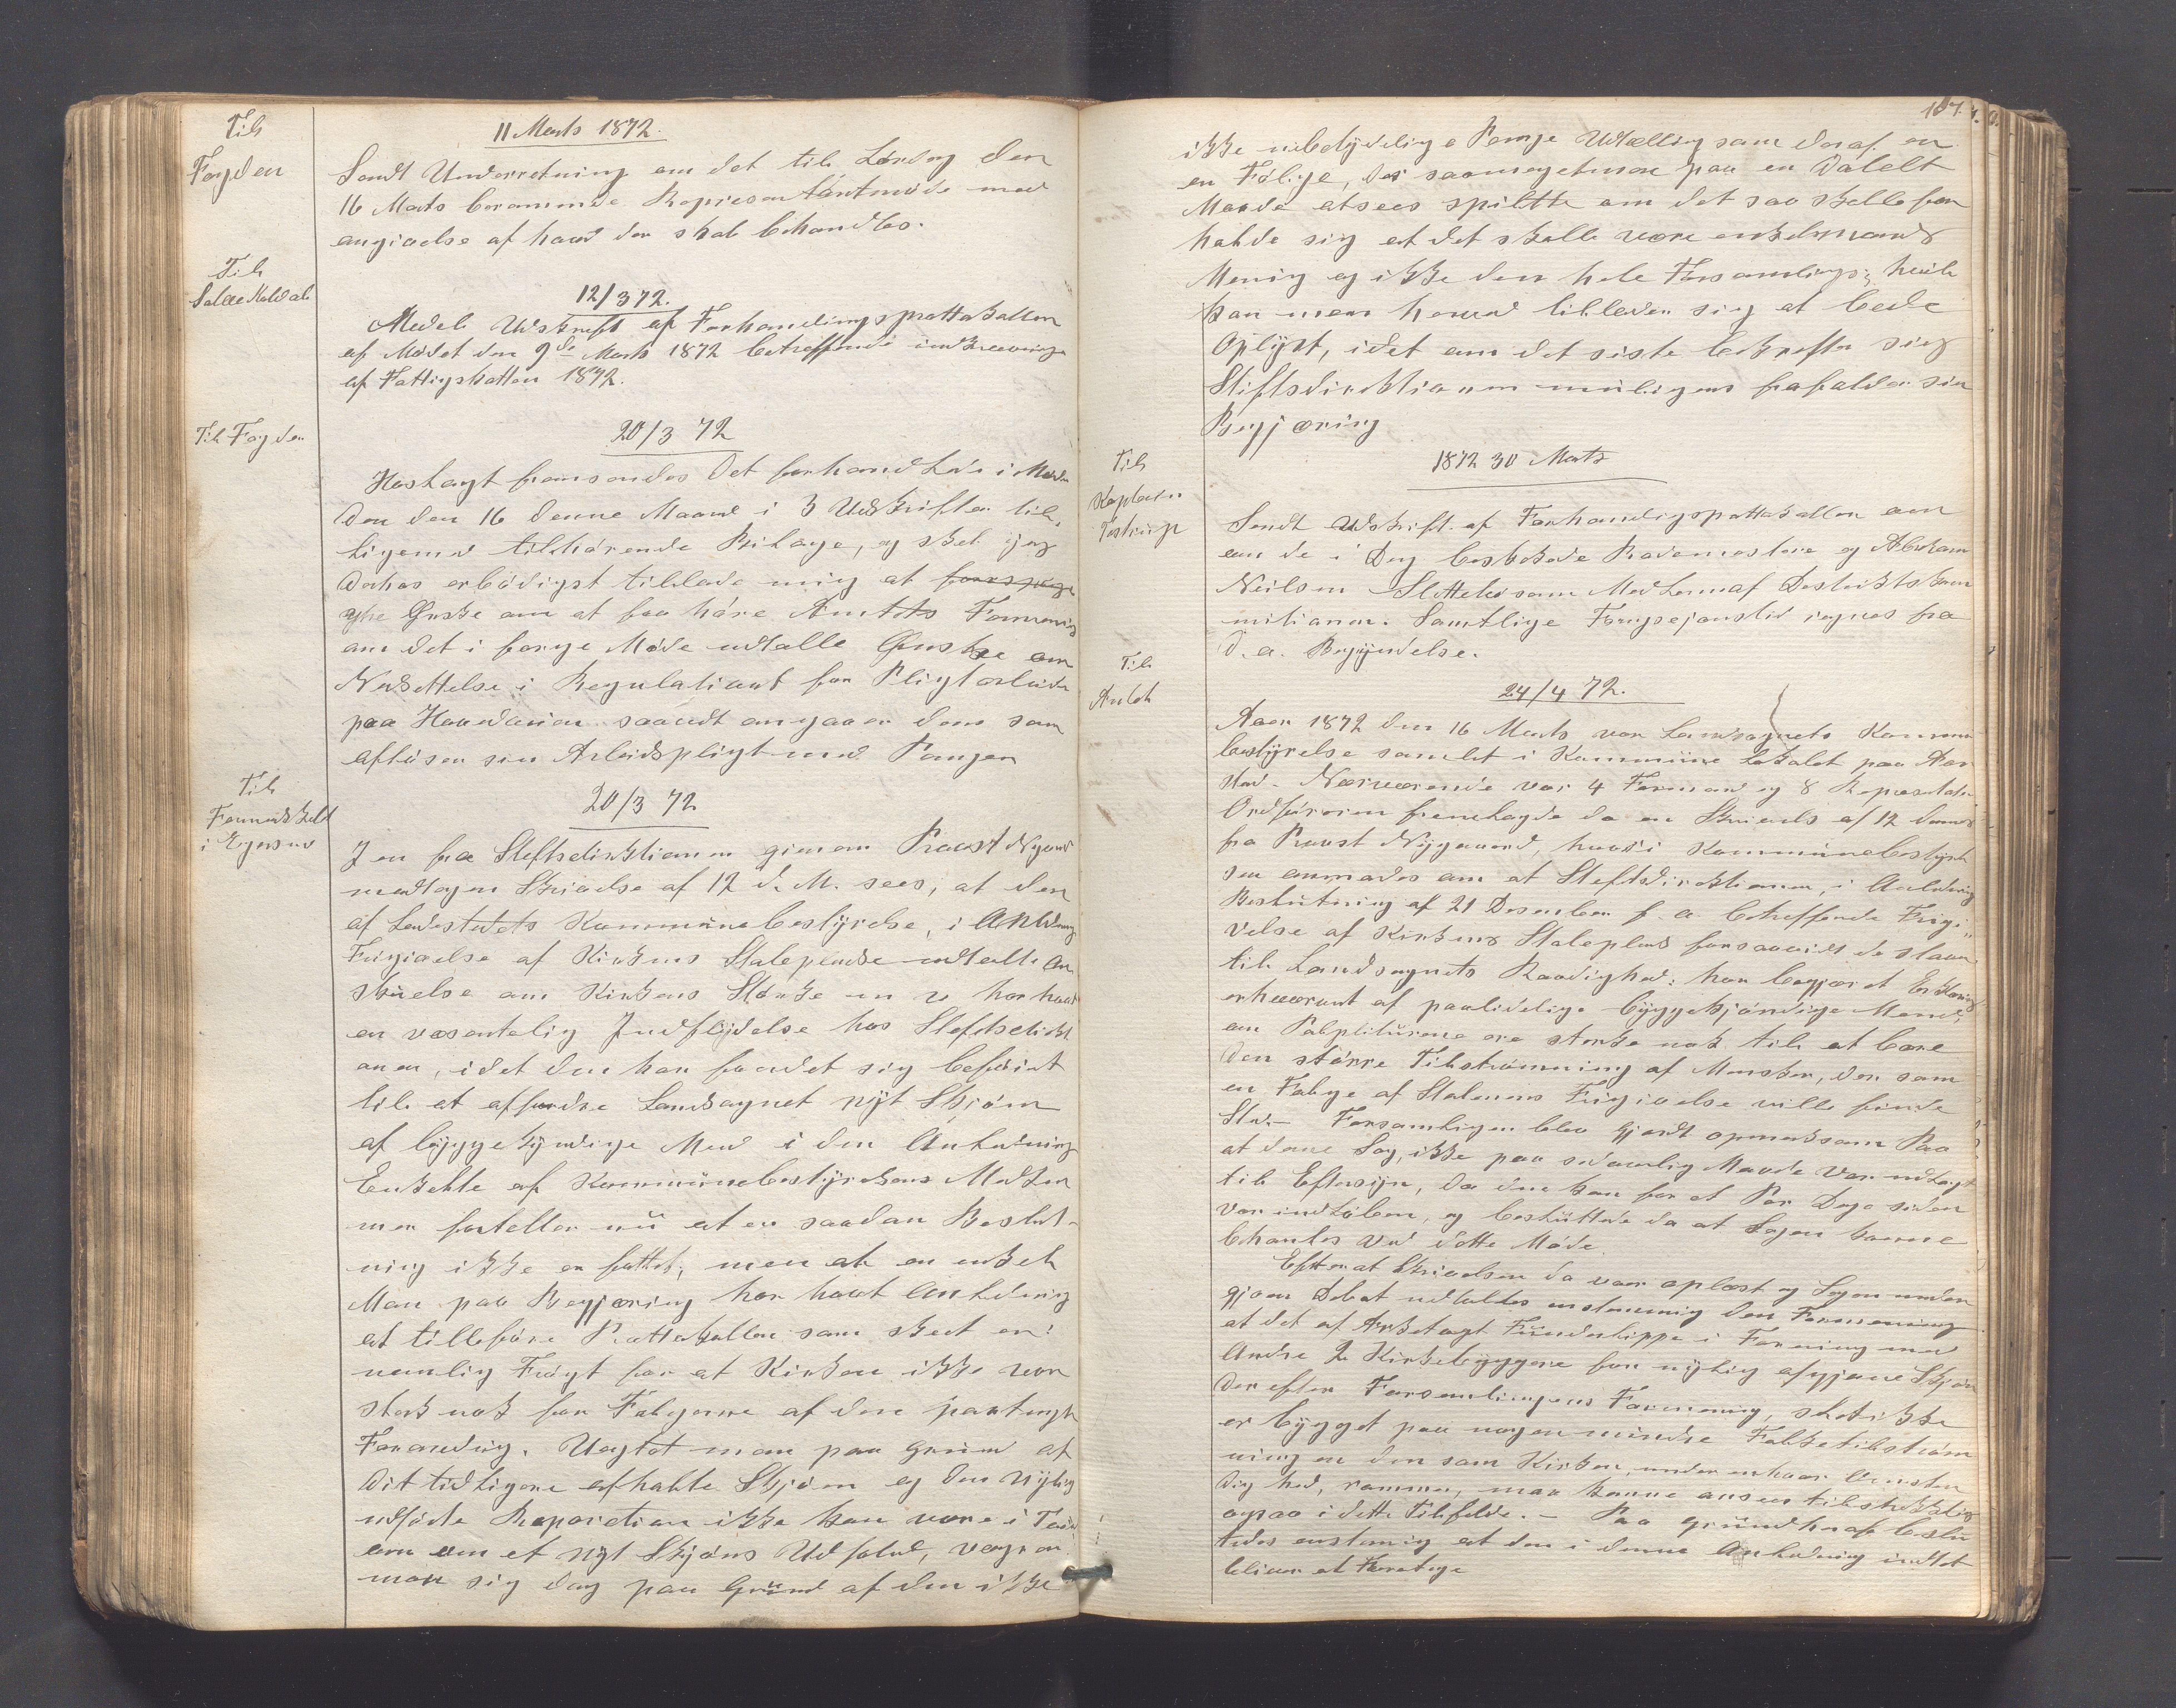 Til
Fogden
11 Marts 1872.
Sendt Underretning om det til Lørdag den
16 Marts berammede Representantmøde med
angivelse af hvad der skal behandles.
Til
12/3 72.
Medel Udskrift af Forhandlingsprottokollen
af Mødet den 9de Marts 1872 betreffende
af Fattigskatten 1872.
Til Fogden
20/3 72
Hoslagt fremsendes det forhandlede i
den 16 denne Maaned i 3 Udskrifter til
ligemed tilhørende Bilage, og skal jeg
derhos erbødigst tillade mig at
ytre Ønske om at faa høre Amtets Formening
om det i forrige Møde udtalte Ønske om
Nedsettelse i Regulativet for Pligtarbeide
paa Hovedveien saavidt angaaer dem som
afløser sin Arbeidspligt med Penger
Til
Formandskabet
i Egersund
20/3 72
I en fra Stiftsdirektionen gjenem Provst Nygaard
modtagen Skrivelse af 12 d. M. sees, at den
af Ladestedets Kommunebestyrelse, i Anledning
Frigivelse af Kirkens Stolepladse udtalte An
skuelse om Kirkens Storke
en væsentelig Indflydelse hos Stiftsdirekti
onen, idet den har fundet sig beføiet
til at affordre Landsognet nyt Skjøn
af byggekyndige Mend i den Anledning
Enkelte af Kommunebestyrelsens Medlem
mer forteller nu at en saadan Beslut-
ning ikke er fattet, men at en enkelt
Man paa Begjæring har havt Anledning
at tilleføre Prottokollen som skeet er:
nemlig Frygt for at Kirken ikke var
sterk nok for Følgerne af den
Forandring. Uagtet man paa Grund af
dit tidligere afholte Skjøn og den nylig
udførte Reparation ikke kan være i Tvivl
om om et nyt Skjøns Udfald, vegrer
man sig dog paa Grund af den ikke
187.
ikke ubetydelige Penge Udtelling som deraf er
en Følge, der saameget mere paa en
Maade at sees spildte om det saa skulle for
holde sig at det skulle være enkeltmands
Mening og ikke den hele Forsamlings; hvil
kan man herved tillader sig at bede
Oplyst, idet om det siste bekrefter sig
Stiftsdirektionen muligens frafalder sin
Begjæring
Til
1872 30 Marts
Sendt Udskrift af Forhandligsprottokollen om
om de i Dag beskikkede Rodemestere og Abraham
Neilsen Slettebø som Medlem af Destriktskom
mitionen. Samtlige Fungsejonstid regnes fra
d. a. Begyndelse.
Til
24/4 72.
Aaer 1872 den 16 Marts var Landsognets Kommune
bestyrelse samlet i Kommune Lokalet paa Aar
stad. Nærværende var 4 Formænd og 8 Represtanter
Ordføreren fremlagde da en Skrivels af 12 dennes
fra Provst Nygaard, hvori Kommunebestyrel
sen anmodes om at Stiftsdirektionen, i Anledning
Beslutning af 21 Desember f. a. betreffende Frigi„
velse af Kirkens Stoleplads forsaavidt de staar
til Landsognets Raadighed: har begjæret Erklæring
erhvervet af paalidelige byggekjøndige Mend,
om Pulpiturene ere sterke nok til at bære
den større Tilstrømning af Mensker, der som
en Følge af Stolenes Frigivelse ville finde
Sted.- Forsamligen blev gjordt opmerksom Paa
at denne Sag, ikke paa sedvanlig Maade var udlagt
til Eftersyn, da den kun for et Par Dage siden
var indløben, og besluttede da at Sagen kunne
behanles ved dette Møde.
Efterat Skrivelsen da var oplæst og Sagen under
gjaen Debat udtaltes enstemmig den Formening
at det af Arkitegt i Forening med
Andre 2 Kirkebyggere for nylig afgjevne Skjøn
der efter Forsamlingens Formening, slet ikke
er bygget paa nogen mindre Folketilstrøm
ning en den som Kirken, under enhver Omsten
dig hed, rommer, maa kunne ansees tilstrekkelig
ogsaa i dette Tilfelde. - Paa Grund heraf beslut
tedes enstemig at den i denne Anledning indtet
bliver at Foretage